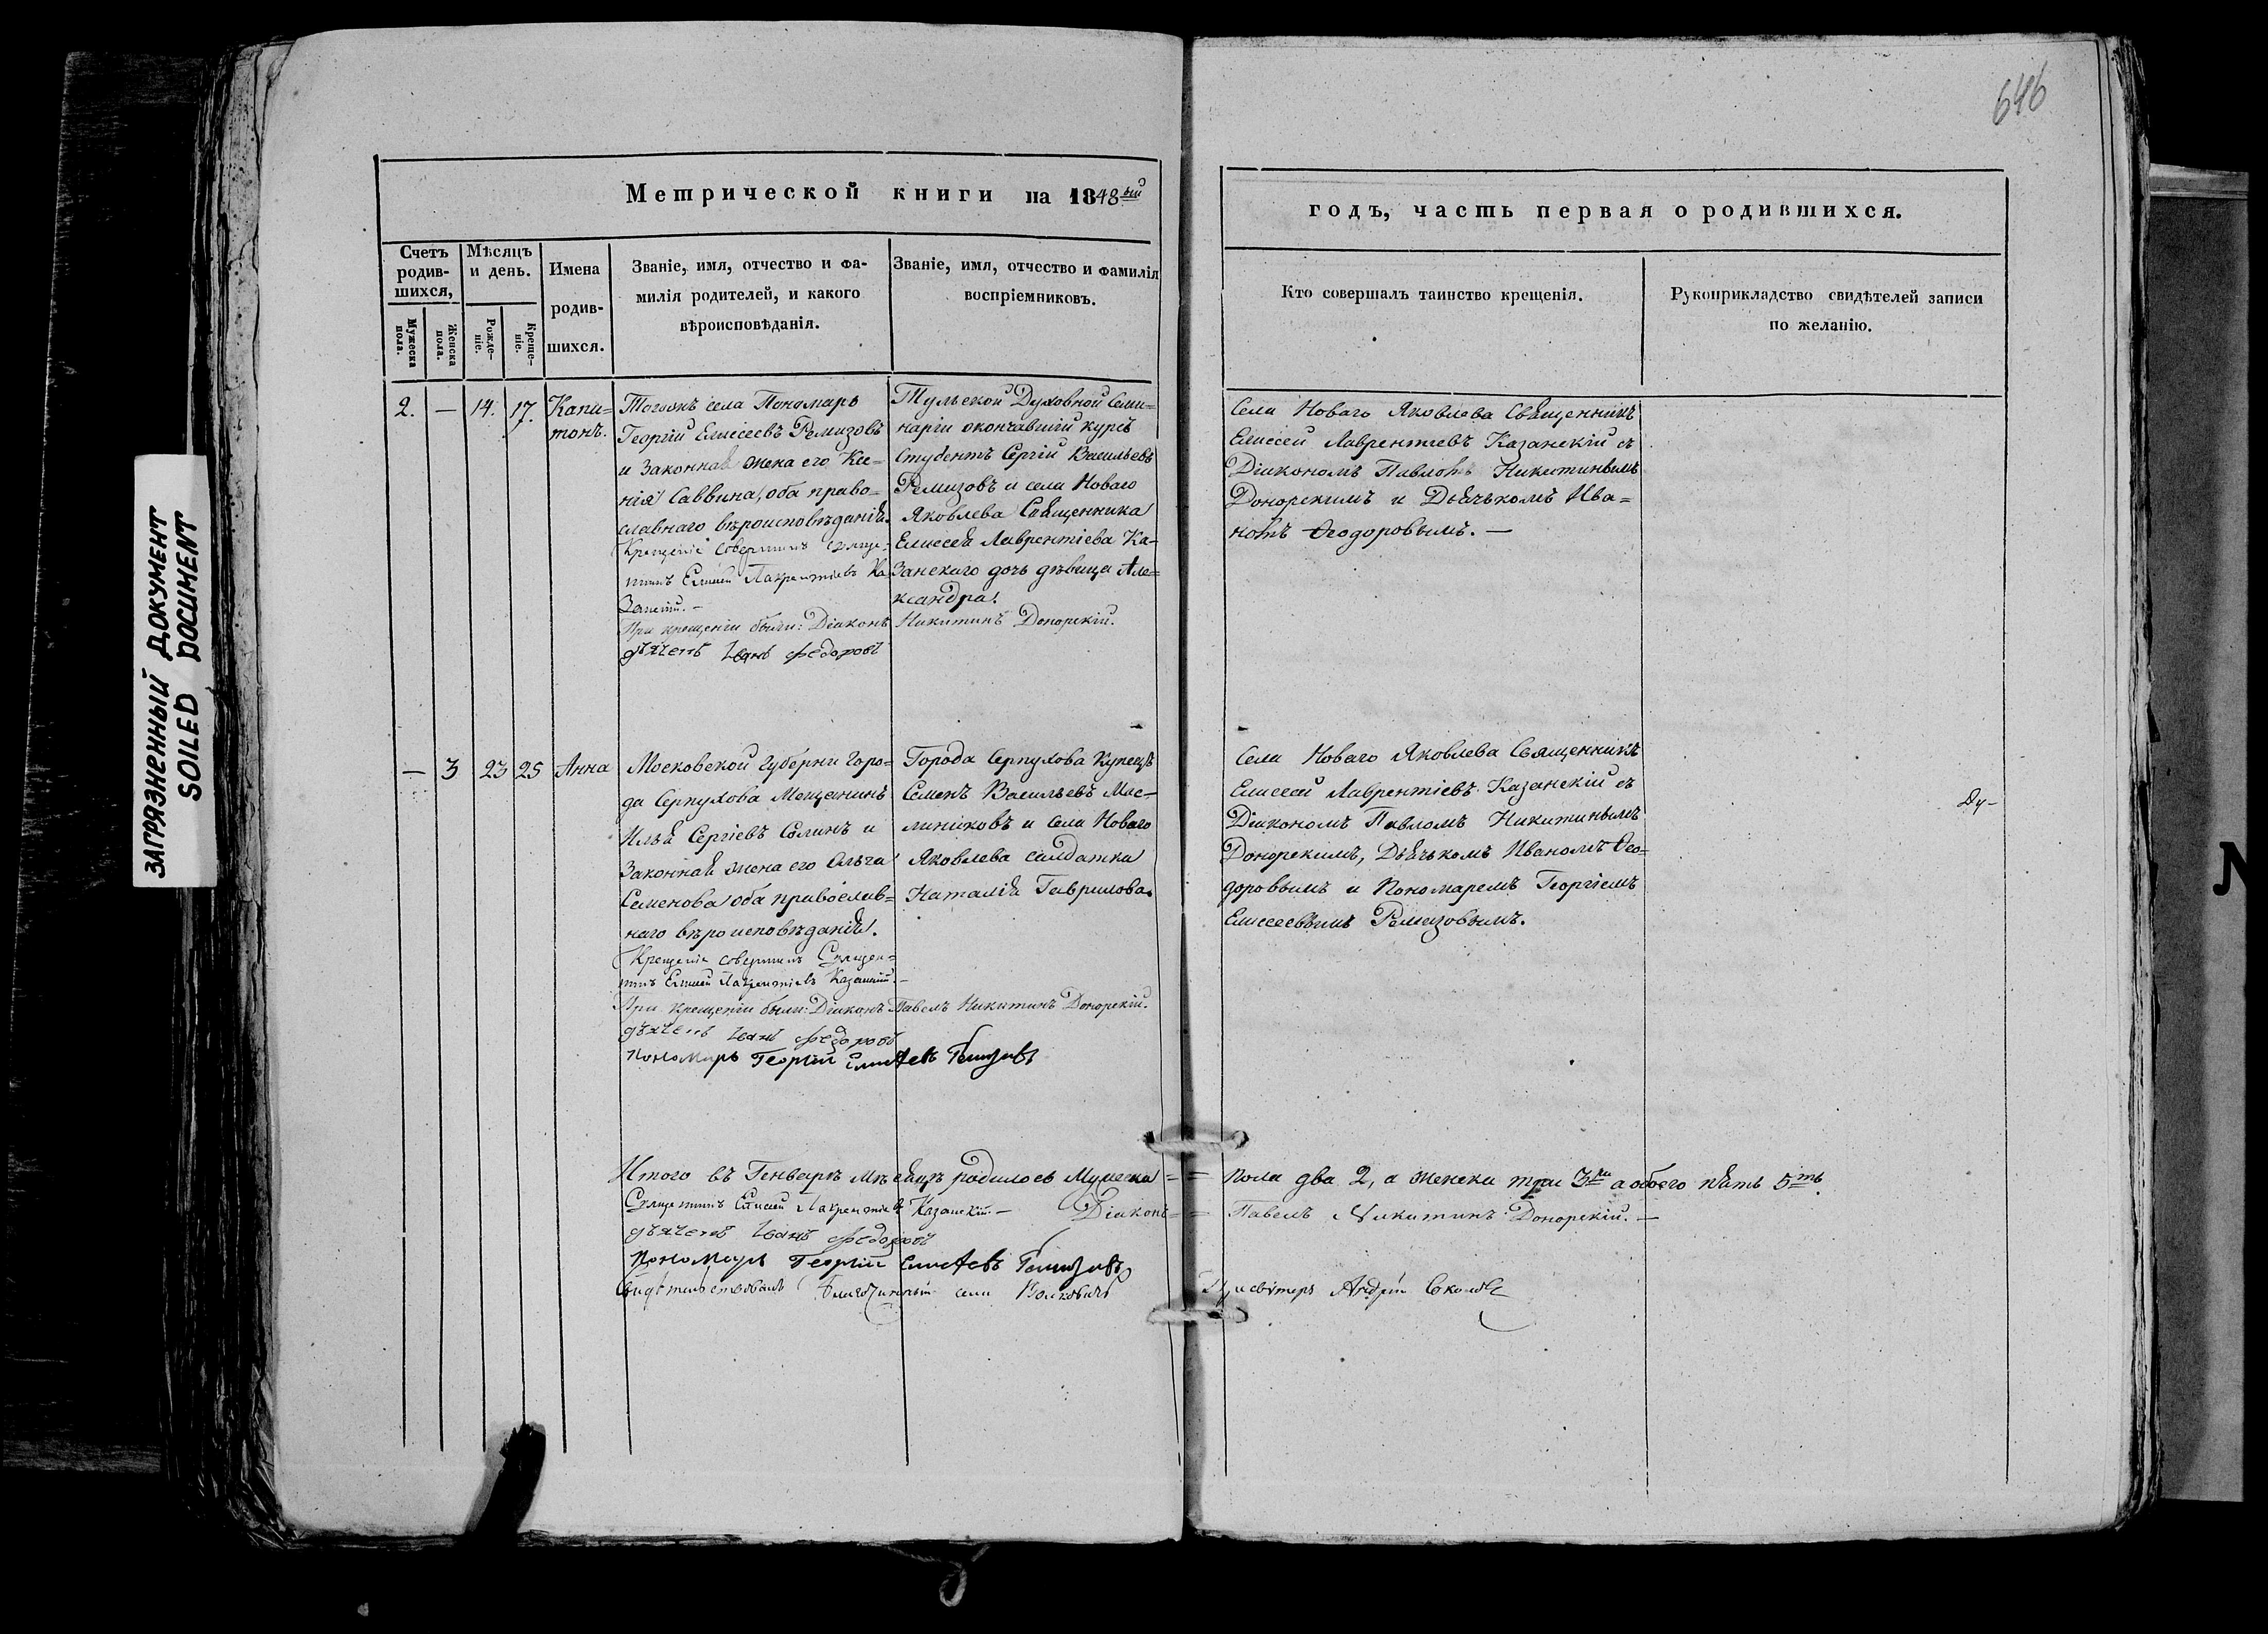 646
ЗАГРЯЗНЕННЫЙ ДОКУМЕНТ
SOILED DOCUMENT
Метрической книги на 1848ый
годъ, часть первая о родившихся.
Счетъ родив-
шихся,
Мужеска пола.
Женска пола.
Мѣсяцъ
и день.
Рожде-
ніе.
Креще-
ніе.
Имена
родив-
шихся.
Званіе, имя, отчество и фа-
милія родителей, и какого
вѣроисповѣданія.
Званіе, имя, отчество и фамилія
воспріемниковъ.
Кто совершалъ таинство крещенія.
Рукоприкладство свидѣтелей записи
по желанію.
2. — 14. 17. Капи=
тонъ.
Тогожъ села Пономарь
Георгій Елисеевъ Ремизовъ
и законная жена его Ксе-
нія Саввина, оба право=
славнаго вѣроисповѣданія.
Крещеніе совершилъ Священ-
никъ Елисей Лаврентіевъ Ка
занскій. —
При крещеніи были: Діаконъ Никитинъ Донорскій.
дьячекъ Іванъ федоровъ
Тульской Духовной Семи=
наріи окончавшій курсъ
Студентъ Сергій Васильевъ
Ремизовъ и села Новаго
Яковлева Священника
Елисея Лаврентіева Ка-
занскаго дочь дѣвица Але=
ксандра.
Села Новаго Яковлева Священникъ
Елисей Лаврентіевъ Казанскій съ
Діакономъ Павломъ Никитинымъ
Донорскимъ и Дьячькомъ Ива=
номъ Ѳеодоровымъ. —
— 3 23 25 Анна
Московской Губерни Горо=
да Серпухова Мещанинъ
Илья Сергіевъ Солинъ и
законная жена его Ольга
Семенова, оба православ=
наго вѣроисповѣданія.
Крещеніе совершилъ Священ=
никъ Елисей Лаврентіевъ Казанскій. —
При крещеніи были: Діаконъ Павелъ Никитинъ Донорскій.
дьячекъ Іванъ федоровъ
пономарь Георгій Елисѣевъ Ремизовъ
Города Серпухова Купецъ
Семенъ Васильевъ Мас-
линиковъ и села Новаго
Яковлева солдатка
Наталія Гаврилова.
Села Новаго Яковлева Священникъ
Елисей Лаврентіевъ Казанскій съ
Діакономъ Павломъ Никитинымъ
Донорскимъ, Дьячькомъ Иваномъ Ѳео-
доровымъ и Пономаремъ Георгіемъ
Елисеевымъ Ремизовымъ.
Ду-
Итого въ Генварѣ Мѣсяцѣ родилось Мужеска = = пола два 2, а женска три 3ри а обоего пять 5ть.
Священникъ Елисей Лаврентіевъ Казанскій. — Діаконъ = = Павелъ Никитинъ Донорскій. —
дьячекъ Іванъ федоровъ
пономарь Георгій Елисѣевъ Ремизовъ
Свидѣтельствовалъ Благочинный села Волковичь Пресвитеръ Андрей Соколовъ